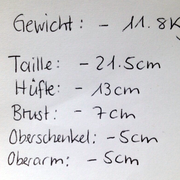 Gewicht: - 11.8K
Taille: - 21.5cm
Hüfte: - 13cm
Brust: - 7cm
Oberschenkel: -5cm
Oberarm: - 5cm